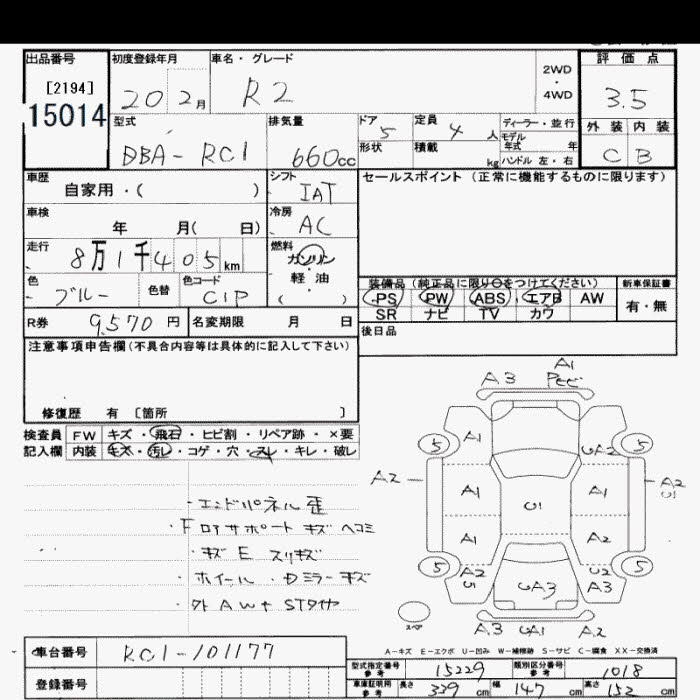 出品番号 初度登録年月 車名・グレード 評価点
[2194] 2WD・4WD
15014 20 2月 R2 3.5
型式 排気量 ドア 5 定員 4人 ディーラー・並行 外装 内装
DBA-RC1 660cc 形状 積載 kg モデル年式 年 ハンドル 左・右 C B
車歴 自家用・( ) シフト IAT セールスポイント(正常に機能するものに限ります)
車検 年 月( 日) 冷房 AC
走行 8万1千405km 燃料 ガソリン・軽油 ( )
色 ブルー 色替 色コード C1P 装備品(純正品に限り○をつけてください) 新車保証書
PS PW ABS エアB AW 有・無
R券 9,570円 名変期限 月 日 SR ナビ TV カワ
注意事項申告欄(不具合内容等は具体的に記入して下さい) 後日品
修復歴 有 〔箇所 〕
検査員 FW キズ・飛石・ヒビ割・リペア跡・×要
記入欄 内装 キズ・汚レ・コゲ・穴・スレ・キレ・破レ
A3 A1
5 A1 UA2 5
A2 A1 U1 A1 A2 U1
A1 A2
5 A2 U2 5
UA3 A3
スペア
A3 UA1 A2
・エンドパネル歪
・Fロアサポート キズ ヘコミ
・キズ E スリキズ
・ホイール・Dミラーキズ
・外AW+STタイヤ
A-キズ E-エクボ U-凹み W-補修跡 S-サビ C-腐食 XX-交換済
車台番号 RC1-101177
登録番号
型式指定番号 参考 15229 類別区分番号 参考 1018
車庫証明用 参考 長さ 339cm 幅 147cm 高さ 152cm